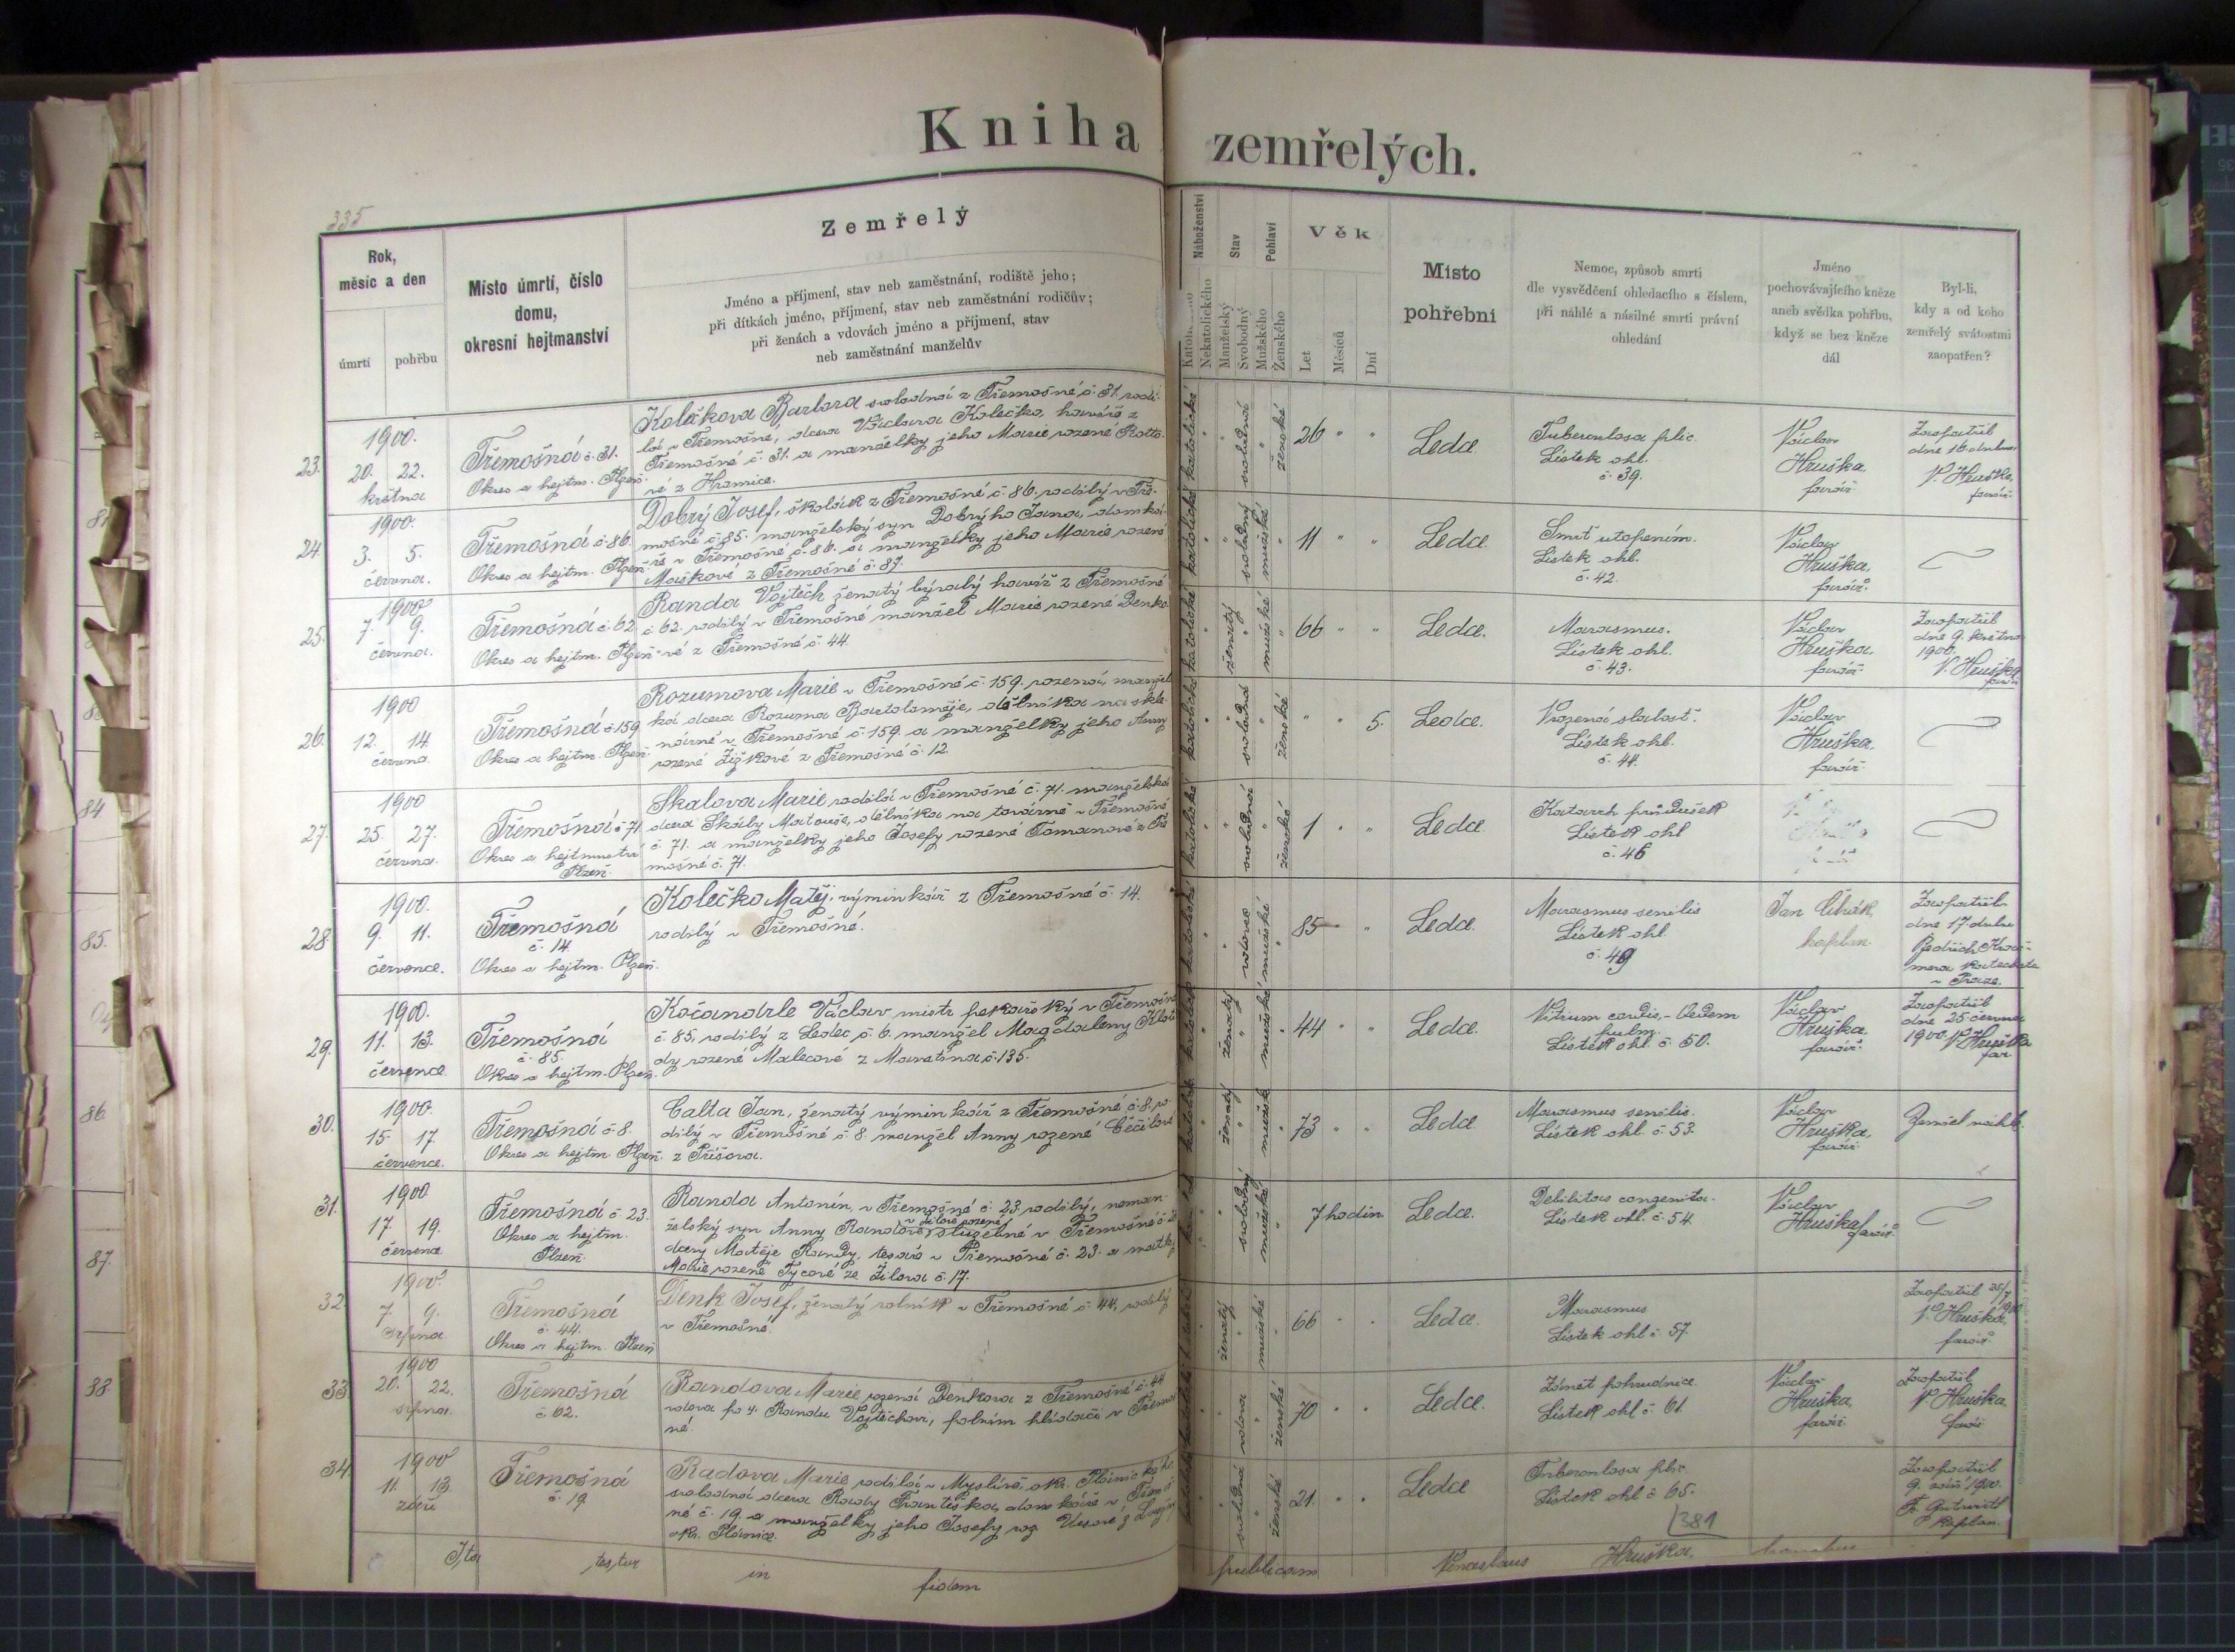 Kniha zemřelých.
335
Rok,
měsíc a den
úmrtí
pohřbu
Místo úmrtí, číslo
domu,
okresní hejtmanství
Zemřelý
Jméno a příjmení, stav neb zaměstnání, rodiště jeho;
při dítkách jméno, příjmení, stav neb zaměstnání rodičův;
při ženách a vdovách jméno a příjmení, stav
neb zaměstnání manželův
Náboženství
Nekatolického
Stav
Manželský
Svobodný
Pohlaví
Mužského
Ženského
Věk
Let
Měsíců
Dní
Místo
pohřební
Nemoc, způsob smrti
dle vysvědčení ohledacího s číslem,
při náhlé a násilné smrti právní
ohledání
Jméno
pochovávajícího kněze
aneb svědka pohřbu,
když se bez kněze
dál
Byl-li,
kdy a od koho
zemřelý svátostmi
zaopatřen?
23.
1900.
20. 22.
května
Třemošná č. 31.
Okres a hejtm. Plzeň.
Kolečkova Barbora svobodná z Třemošné č. 31. rodi-
lá v Třemošné, dcera Václava Kolečka, havíře z
Třemošné č. 31. a manželky jeho Marie rozené Rotto-
vé z Hromice.
katolické
svobodná
ženské
26 " "
Ledce
Tuberculosa plic.
Lístek ohl.
č. 39.
Václav
Hruška,
farář.
Zaopatřil
dne 16. dubna
V. Hruška,
farář.
24.
1900.
3. 5.
června.
Třemošná č. 86.
Okres a hejtm. Plzeň.
Dobrý Josef, školák z Třemošné č. 86. rodilý v Tře-
mošné č. 85. manželský syn Dobrýho Jana, domká-
ře v Třemošné č. 86. a manželky jeho Marie rozené
Maškové z Třemošné č. 87.
katolické
svobodný
mužské
11 " "
Ledce.
Smrť utopením.
Lístek ohl.
č. 42.
Václav
Hruška,
farář.
25.
1900
7. 9.
června.
Třemošná č. 62.
Okres a hejtm. Plzeň
Randa Vojtěch ženatý bývalý havíř z Třemošné
č. 62. rodilý v Třemošné manžel Marie rozené Denko-
vé z Třemošné č. 44.
katolické
ženatý
mužské
66 " "
Ledce.
Marasmus.
Lístek ohl.
č. 43.
Václav
Hruška,
farář
Zaopatřil
dne 9. května
1900.
V. Hruška
farář
26.
1900
12. 14.
června
Třemošná č. 159
Okres a hejtm. Plzeň.
Rozumova Marie v Třemošné č. 159. rozená, manžel-
ká dcera Rozuma Bartoloměje, dělníka na skle-
nárně v Třemošné č. 159. a manželky jeho Anny
rozené Žižkové z Třemošné č. 12.
katolické
svobodná
ženské
" " 5.
Ledce.
Vrozená slabost.
Lístek ohl.
č. 44.
Václav
Hruška.
farář.
27.
1900
25. 27.
června.
Třemošná č. 71
Okres a hejtmanství
Plzeň.
Skalova Marie rodilá v Třemošné č. 71. manželská
dcera Skály Matouše, dělníka na továrně v Třemošné
č. 71. a manželky jeho Josefy rozené Tomanové z Tře-
mošné č. 71.
katolické
svobodná
ženské
1 " "
Ledce
Katarrh průdušek
Lístek ohl
č. 46
28.
1900.
9. 11.
července.
Třemošná
č. 14.
Okres a hejtm. Plzeň.
Kolečko Matěj, výminkář z Třemošné č. 14.
rodilý v Třemošné.
katolické
vdovec
mužské
85
Ledce.
Marasmus senilis
Lístek ohl
č. 49
Jan
kaplan.
Zaopatřil
dne 17 dubna
29.
1900.
11. 13.
července
Třemošná
č. 85.
Okres a hejtm. Plzeň.
Kočandrle Václav mistr pekařský v Třemošné
č. 85, rodilý z Ledec č. 6. manžel Magdaleny
rozené Malecové z Manětína č. 135.
ženatý
mužské
44 " "
Ledce.
Vitium cordis, - Oedem
pulm.
Lístek ohl. č. 50.
Václav
Hruška,
farář.
Zaopatřil
dne 25 června
1900. V. Hruška
far.
30.
1900.
15. 17.
července.
Třemošná č. 8.
Okres a hejtm. Plzeň.
Calta Jan, ženatý výminkář z Třemošné č. 8. ro-
dilý v Třemošné č. 8. manžel Anny rozené
z Příšova.
ženatý
mužské
73 " "
Ledce
Marasmus senilis.
Lístek ohl. č. 53.
Václav
Hruška,
farář.
Zemřel náhle.
31.
1900
17. 19.
července
Třemošná č. 23.
Okres a hejtm.
Plzeň.
Randa Antonín, v Třemošné č. 23 rodilý, neman-
želský syn Anny Randové, v Žilově rozené, služebné v Třemošné č. 23
dcery Matěje Randy, tesaře v Třemošné č. 23. a matky
Marie rozené Tycové ze Žilova č. 17.
svobodný
mužské
7 hodin
Ledce.
Debilitas congenita.
Lístek ohl. č. 54.
Václav
Hruška,
farář.
32.
1900.
7. 9.
srpna
Třemošná
č. 44.
Okres a hejtm. Plzeň
Denk Josef, ženatý rolník v Třemošné č. 44, rodilý
v Třemošné.
ženatý
mužské
66 " "
Ledce.
Marasmus
Lístek ohl č. 57.
Zaopatřil 25/7
1900
V. Hruška,
farář.
33.
1900
20. 22.
srpna.
Třemošná
č. 62.
Randova Marie rozená Denkova z Třemošné č. 44
vdova po † Randu Vojtěchovi, polním hlídači v Třemoš-
né.
vdova
ženské
70 " "
Ledce.
Zánět pohrudnice.
Lístek ohl č. 61
Václav
Hruška,
farář.
Zaopatřil
V. Hruška
farář
34.
1900
11. 13.
září
Třemošná
č. 19.
Radova Marie, rodilá v Myslívě, okr. Plánického
svobodná dcera Rady Františka, domkáře v Třemoš-
né č. 19. a manželky jeho Josefy roz.
okr. Plánice.
svobodná
ženské
21. " "
Ledce
Tuberculosa plic.
Lístek ohl č. 65.
381
Zaopatřil
9. září 1900.
kaplan.
Ita testur in fidem publicam Venceslaus Hruška,